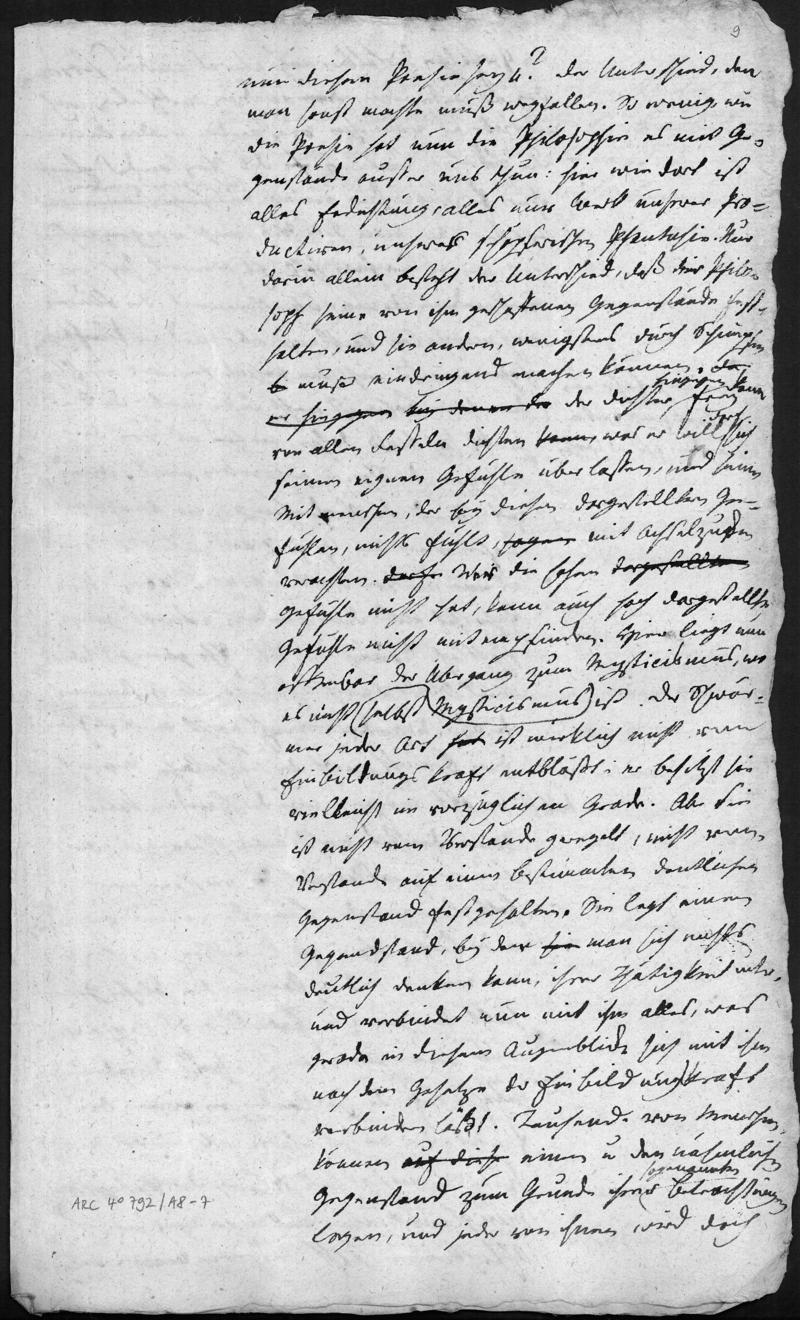 9
nun diesem Poesie seyn? der Unterschied, den
man sonst machte muß wegfallen. So wenig wie
die Poesie hat nun die Philosophie es mit Ge-
genstände ausser uns thun: hier wie dort ist
alles Erdichtung, alles nur Werk unsrer Pro-
ductiven, unserer schöpferischen Phantasie. Nur
darin allein besteht der Unterschied, daß der Philo-
soph seine von ihm geschaffenen Gegenstände fest-
halten, und sie andern, wenigstens durch Schimpfen
muß eindringend machen können. da
er hingegen bey denen der der Dichter hingegen frey kann
von allen Fesseln dichten kann, was er will, darf sich
seinem eignen Gefühle überlassen, und seinen
Mitmenschen, der bey diesen dargestellten Ge-
fühlen, nichts fühlt, mit Achselzucken
verachten. darf Wer die hohen dargestellten
Gefühle nicht hat, kann auch hoch dargestellte
Gefühle nicht mitempfinden. Hier liegt nun
offenbar der Übergang zum Mysticismus, wo
es nicht selbst Mysticismus ist. Der Schwär-
mer jeder Art hat ist wirklich nicht von
Einbildungskraft entblößt: er besitzt sie
vielleicht im vorzüglichen Grade. Aber sie
ist nicht vom Verstande geregelt, nicht vom
Verstande auf einen bestimmten deutlichen
Gegenstand festgehalten. Sie legt einen
Gegendstand, bey dem sie man sich nichts
deutlich denken kann, ihrer Thätigkeit unter,
und verbindet nun mit ihm alles, was
gerade in diesem Augenblick sich mit ihm
nach dem Gesetze der Einbildungskraft
verbinden läßt. Tausende von Menschen,
können auf diese einen u den nähmlichen
Gegenstand zum Grunde ihrer sogenannten Betrachtungen
legen, und jeder von ihnen wird doch
ARC 4° 792/A8-7